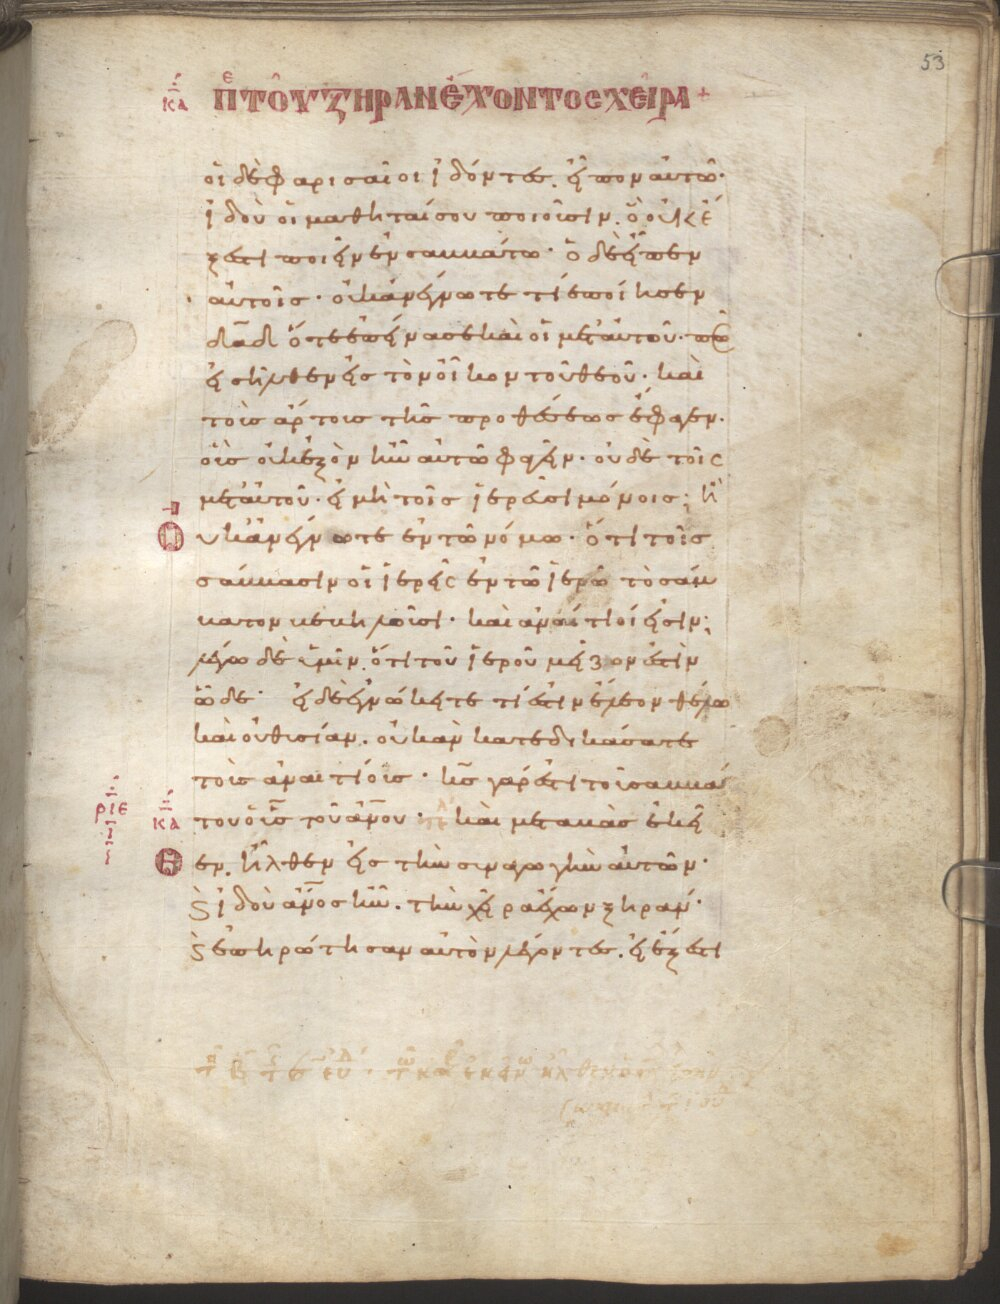 53
κα Πε τοῦ ξηρὰν ἔχοντος χεῖρα +
οἱ δὲ φαρισαῖοι ἰδόντες, εἶπον αὐτῶ·
ἰδοὺ οἱ μαθηταί σου ποιοῦσιν, ὃ οὐκ ἔ
ξεστι ποιεῖν ἐν σαββάτω· ὁ δὲ εἶπεν
αὐτοῖς· οὐκ ἀνέγνωτε τί ἐποίησεν
δαδ ὅτε ἐπείνασε καὶ οἱ μετ' αὐτοῦ· πῶ
εἰσῆλθεν εἰς τὸν οἶκον τοῦ θεοῦ· καὶ
τοὺς ἄρτους τῆς προθέσεως ἔφαγεν·
οὓς οὐκ ἐξὸν ἦν αὐτῶ φαγεῖν· οὐδὲ τοῖς
μετ' αὐτοῦ· εἰ μὴ τοῖς ἱερεῦσι μόνοις; ἢ
Οὐκ ἀνέγνωτε ἐν τῶ νόμω· ὅτι τοῖς
σάββασιν οἱ ἱερεῖς ἐν τῶ ἱερῶ τὸ σάβ
βατον βεβηλοῦσι· καὶ ἀναίτιοί εἰσιν;
λέγω δὲ ὑμῖν, ὅτι τοῦ ἱεροῦ μεῖζον ἐστὶν
ὧδε· εἰ δὲ ἐγνώκειτε τί ἐστιν ἔλεον θέλω
καὶ οὐ θυσίαν, οὐκ ἂν κατεδικάσατε
τοὺς ἀναιτίους· κς γάρ ἐστι τοῦ σαββά
ριε
κα
του ὁ υς τοῦ ανου· καὶ μεταβὰς ἐκεῖ
Θεν, ἦλθεν εἰς τὴν συναγωγὴν αὐτῶν·
ϗ ἰδοὺ ανος ἦν, τὴν χεῖρα ἔχων ξηράν·
ϗ ἐπηρώτησαν αὐτὸν λέγοντες, εἰ ἔξεστι